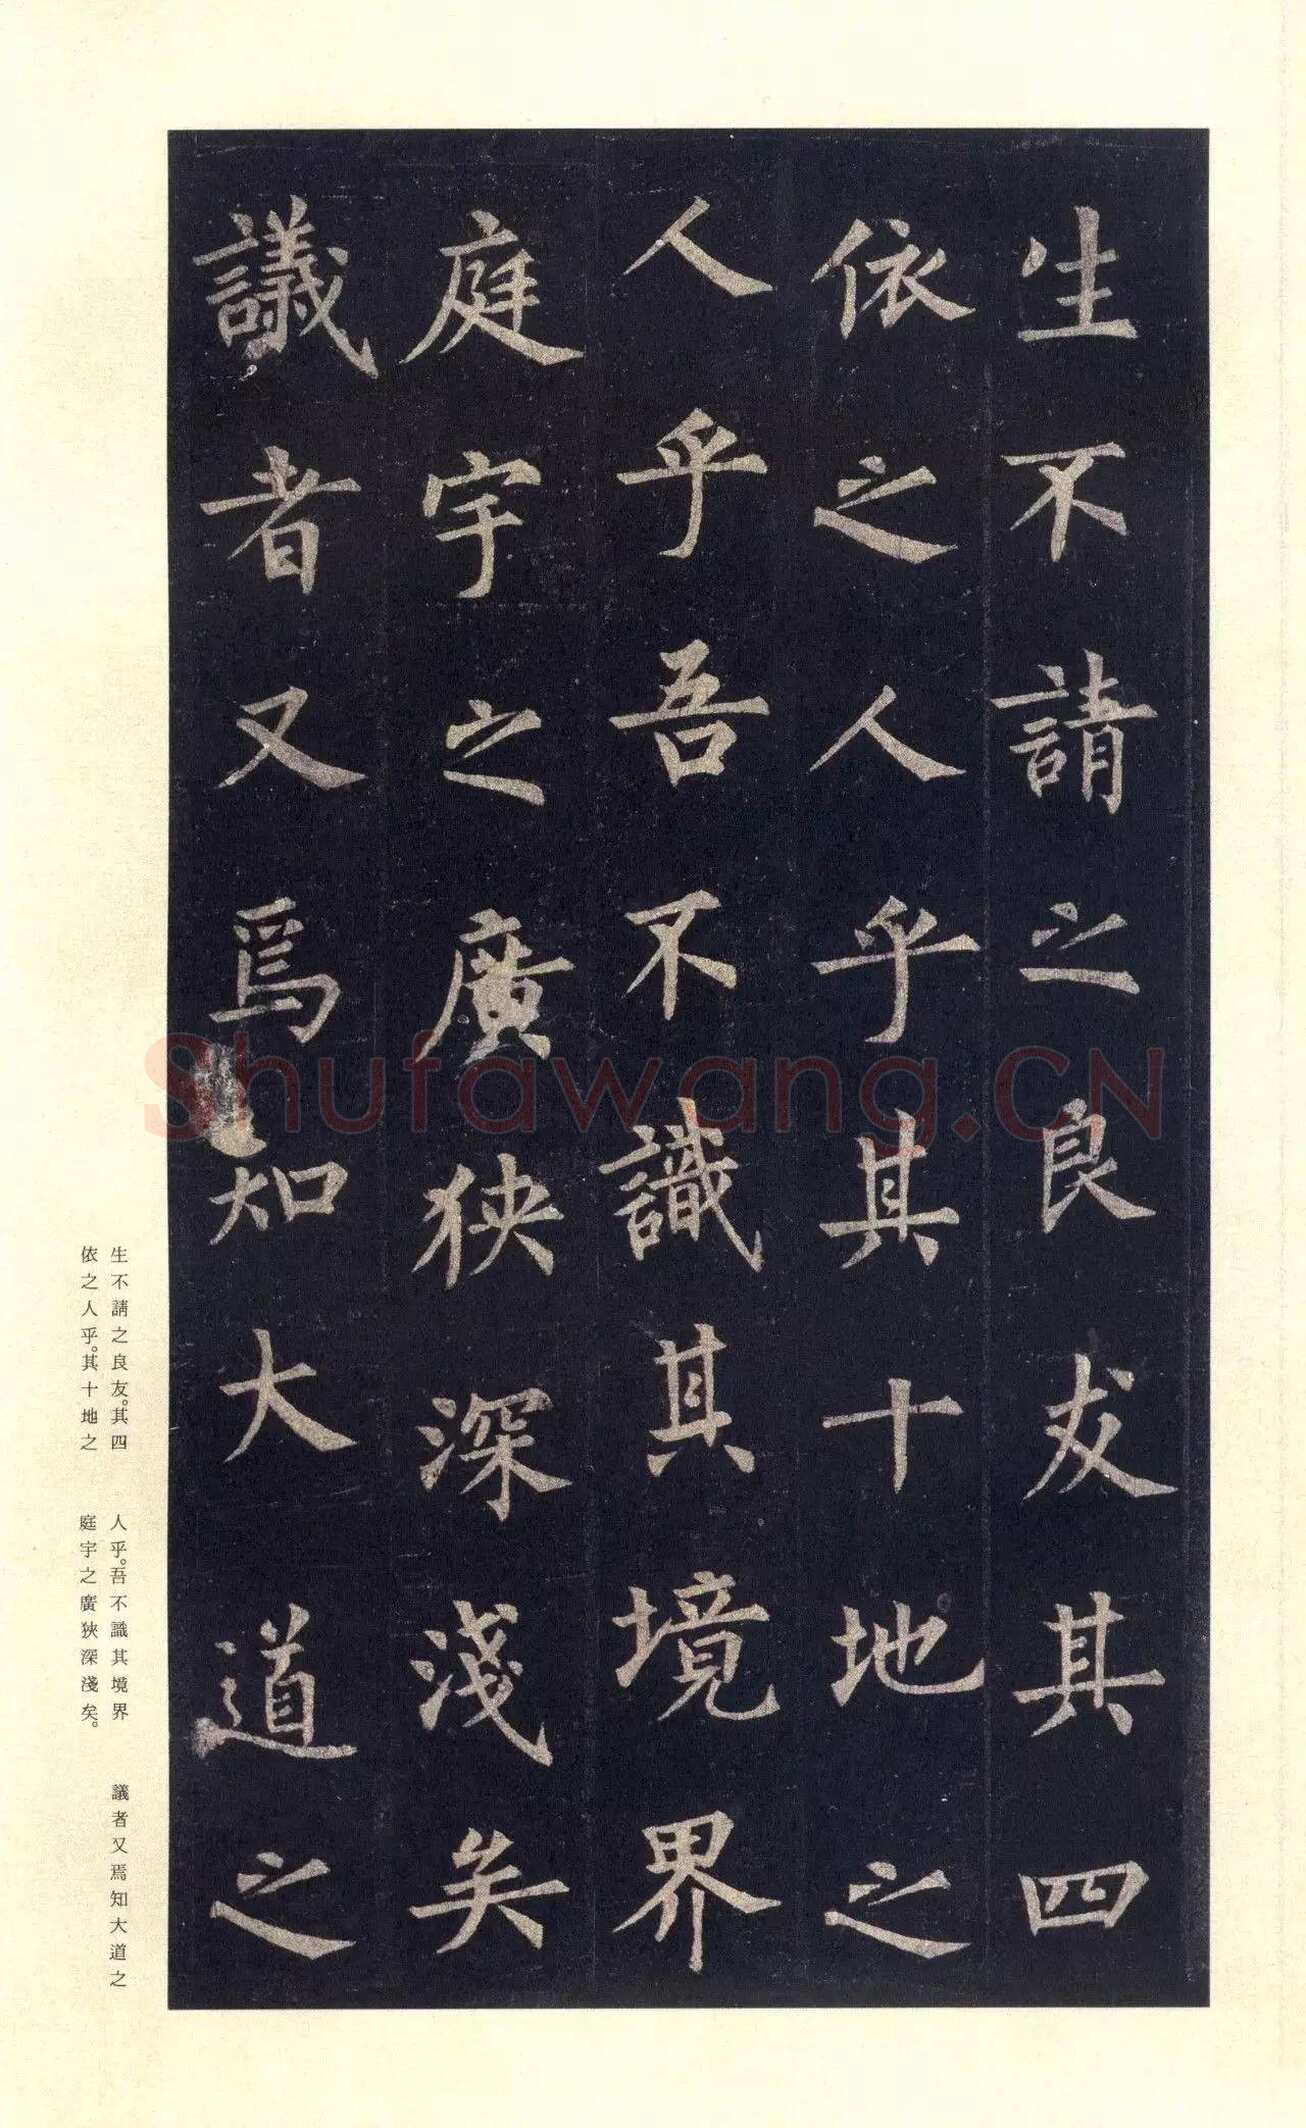 生不請之良友其四
依之人乎其十地之
人乎吾不識其境界
庭宇之廣狹深淺矣
議者又焉知大道之
生不請之良友。其四
依之人乎。其十地之
人乎。吾不識其境界
庭宇之廣狹深淺矣。
議者又焉知大道之
Shufawang.CN